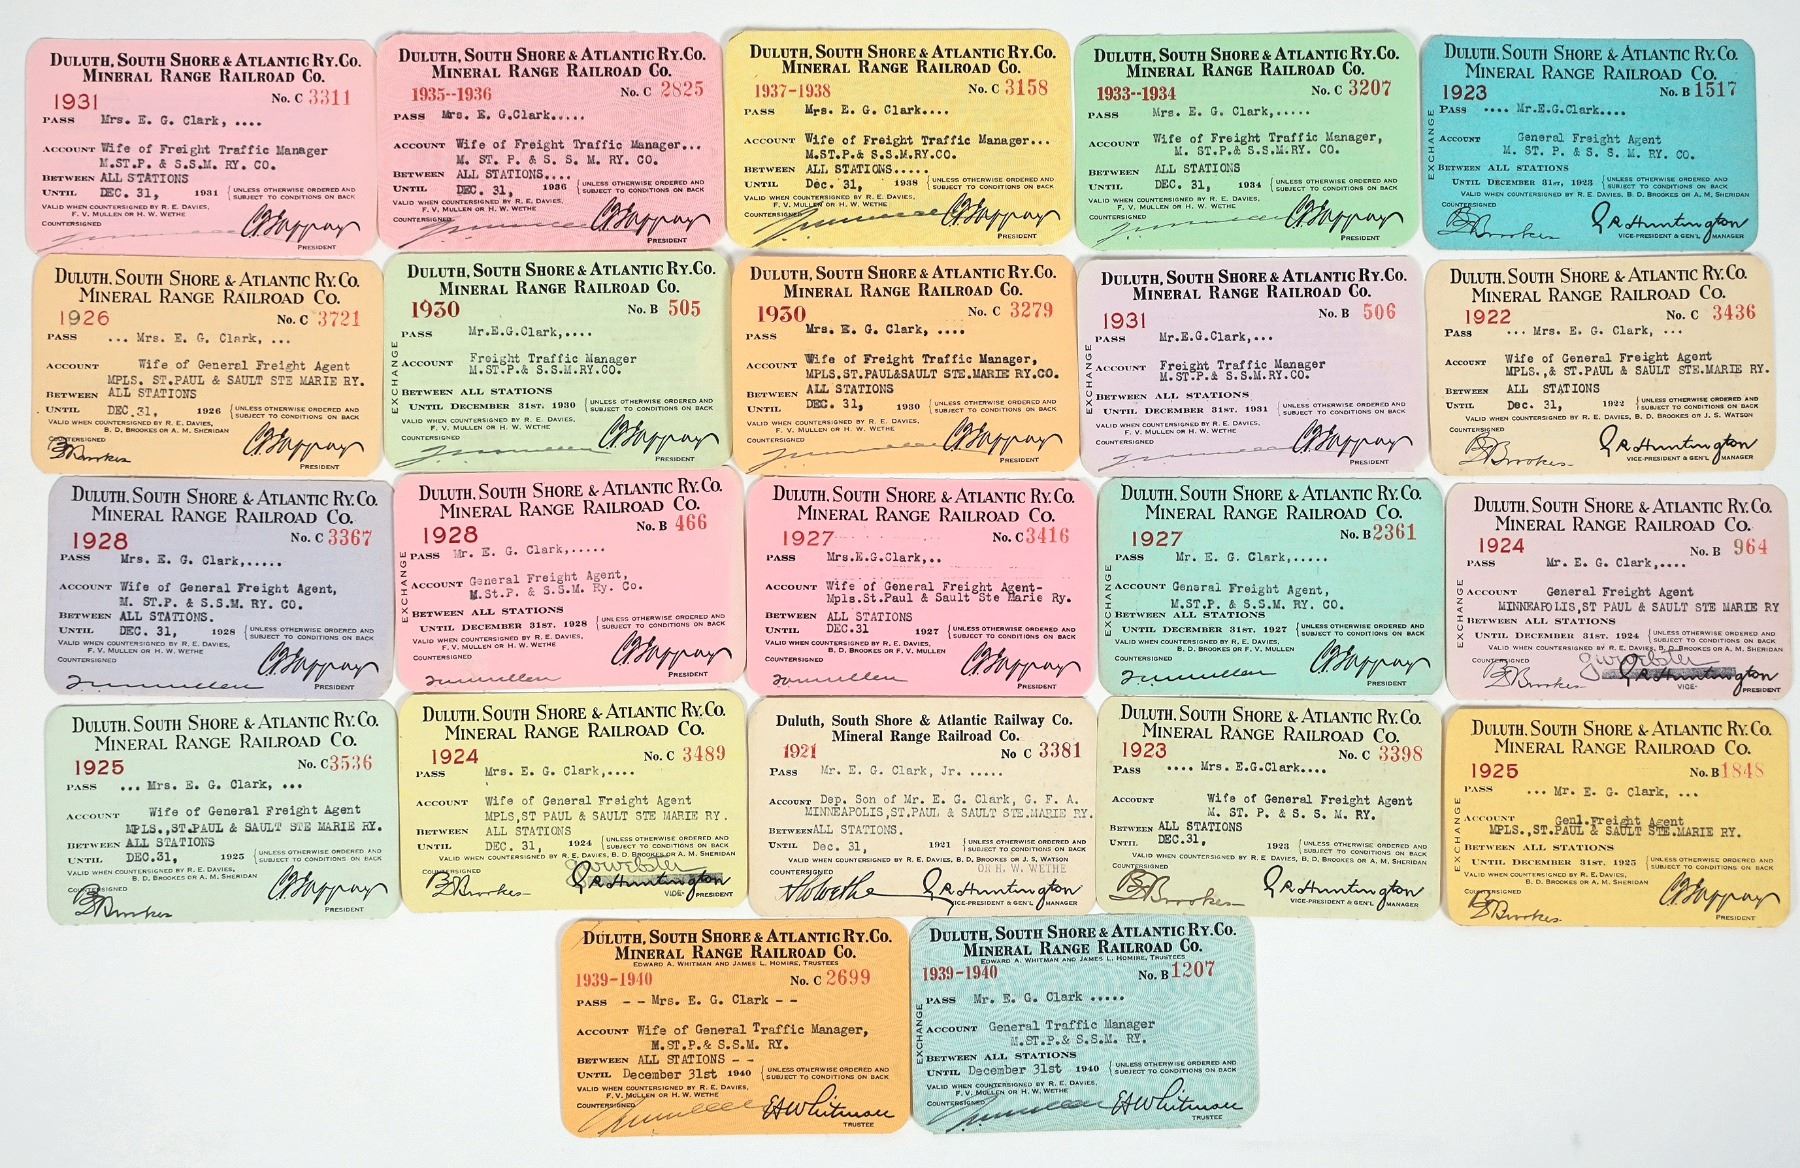 DULUTH, SOUTH SHORE & ATLANTIC RY. CO.
MINERAL RANGE RAILROAD CO.
1931 No. C 3311
PASS Mrs. E. G. Clark, ....
ACCOUNT Wife of Freight Traffic Manager
M.ST.P. & S.S.M. RY. CO.
BETWEEN ALL STATIONS
UNTIL DEC. 31, 1931 UNLESS OTHERWISE ORDERED AND
SUBJECT TO CONDITIONS ON BACK
VALID WHEN COUNTERSIGNED BY R. E. DAVIES,
F. V. MULLEN OR H. W. WETHE
COUNTERSIGNED
PRESIDENT
DULUTH, SOUTH SHORE & ATLANTIC RY. CO.
MINERAL RANGE RAILROAD CO.
1935--1936 No. C 2825
PASS Mrs. E. G.Clark.....
ACCOUNT Wife of Freight Traffic Manager...
M. ST. P. & S. S. M. RY. CO.
BETWEEN ALL STATIONS....
UNTIL DEC. 31, 1936 UNLESS OTHERWISE ORDERED AND
SUBJECT TO CONDITIONS ON BACK
VALID WHEN COUNTERSIGNED BY R. E. DAVIES,
F. V. MULLEN OR H. W. WETHE
COUNTERSIGNED
PRESIDENT
DULUTH, SOUTH SHORE & ATLANTIC RY. CO.
MINERAL RANGE RAILROAD CO.
1937-1938 No. C 3158
PASS Mrs. E. G. Clark....
ACCOUNT Wife of Freight Traffic Manager...
M.ST.P.& S.S.M.RY.CO.
BETWEEN ALL STATIONS.....
UNTIL Dec. 31, 1938 UNLESS OTHERWISE ORDERED AND
SUBJECT TO CONDITIONS ON BACK
VALID WHEN COUNTERSIGNED BY R. E. DAVIES,
F. V. MULLEN OR H. W. WETHE
COUNTERSIGNED
PRESIDENT
DULUTH, SOUTH SHORE & ATLANTIC RY. CO.
MINERAL RANGE RAILROAD CO.
1933--1934 No. C 3207
PASS Mrs. E. G. Clark,.....
ACCOUNT Wife of Freight Traffic Manager,
M. ST. P.& S.S.M.RY.CO.
BETWEEN ALL STATIONS
UNTIL DEC. 31, 1934 UNLESS OTHERWISE ORDERED AND
SUBJECT TO CONDITIONS ON BACK
VALID WHEN COUNTERSIGNED BY R. E. DAVIES,
F. V. MULLEN OR H. W. WETHE
COUNTERSIGNED
PRESIDENT
DULUTH, SOUTH SHORE & ATLANTIC RY. CO.
MINERAL RANGE RAILROAD CO.
1923 No. B 1517
EXCHANGE
PASS .... Mr.E.G.Clark....
ACCOUNT General Freight Agent
M. ST. P. & S. S. M. RY. CO.
BETWEEN ALL STATIONS
UNTIL DECEMBER 31ST, 1923 UNLESS OTHERWISE ORDERED AND
SUBJECT TO CONDITIONS ON BACK
VALID WHEN COUNTERSIGNED BY R. E. DAVIES, B. D. BROOKES OR A. M. SHERIDAN
COUNTERSIGNED
BDBrookes GRHuntington
VICE-PRESIDENT & GEN'L MANAGER
DULUTH, SOUTH SHORE & ATLANTIC RY. CO.
MINERAL RANGE RAILROAD CO.
1926 No. C 3721
PASS ... Mrs. E. G. Clark, ...
ACCOUNT Wife of General Freight Agent
MPLS. ST.PAUL & SAULT STE MARIE RY.
BETWEEN ALL STATIONS
UNTIL DEC.31, 1926 UNLESS OTHERWISE ORDERED AND
SUBJECT TO CONDITIONS ON BACK
VALID WHEN COUNTERSIGNED BY R. E. DAVIES,
B. D. BROOKES OR A. M. SHERIDAN
COUNTERSIGNED
BDBrookes
PRESIDENT
DULUTH, SOUTH SHORE & ATLANTIC RY. CO.
MINERAL RANGE RAILROAD CO.
1930 No. B 505
EXCHANGE
PASS Mr.E.G.Clark,....
ACCOUNT Freight Traffic Manager
M.ST.P.& S.S.M.RY.CO.
BETWEEN ALL STATIONS
UNTIL DECEMBER 31ST. 1930 UNLESS OTHERWISE ORDERED AND
SUBJECT TO CONDITIONS ON BACK
VALID WHEN COUNTERSIGNED BY R. E. DAVIES,
F. V. MULLEN OR H. W. WETHE
COUNTERSIGNED
PRESIDENT
DULUTH, SOUTH SHORE & ATLANTIC RY. CO.
MINERAL RANGE RAILROAD CO.
1930 No. C 3279
PASS Mrs. E. G. Clark, ....
ACCOUNT Wife of Freight Traffic Manager,
MPLS.ST.PAUL&SAULT STE.MARIE RY.CO.
BETWEEN ALL STATIONS
UNTIL DEC. 31, 1930 UNLESS OTHERWISE ORDERED AND
SUBJECT TO CONDITIONS ON BACK
VALID WHEN COUNTERSIGNED BY R. E. DAVIES,
F. V. MULLEN OR H. W. WETHE
COUNTERSIGNED
PRESIDENT
DULUTH, SOUTH SHORE & ATLANTIC RY. CO.
MINERAL RANGE RAILROAD CO.
1931 No. B 506
EXCHANGE
PASS Mr.E.G.Clark,...
ACCOUNT Freight Traffic Manager
M.ST.P.& S.S.M.RY.CO.
BETWEEN ALL STATIONS
UNTIL DECEMBER 31ST. 1931 UNLESS OTHERWISE ORDERED AND
SUBJECT TO CONDITIONS ON BACK
VALID WHEN COUNTERSIGNED BY R. E. DAVIES,
F. V. MULLEN OR H. W. WETHE
COUNTERSIGNED
PRESIDENT
DULUTH, SOUTH SHORE & ATLANTIC RY. CO.
MINERAL RANGE RAILROAD CO.
1922 No. C 3436
PASS ... Mrs. E. G. Clark, ...
ACCOUNT Wife of General Freight Agent
MPLS.,& ST.PAUL & SAULT STE.MARIE RY.
BETWEEN ALL STATIONS
UNTIL Dec. 31, 1922 UNLESS OTHERWISE ORDERED AND
SUBJECT TO CONDITIONS ON BACK
VALID WHEN COUNTERSIGNED BY R. E. DAVIES, B. D. BROOKES OR J. S. WATSON
COUNTERSIGNED
BDBrookes GRHuntington
VICE-PRESIDENT & GEN'L MANAGER
DULUTH, SOUTH SHORE & ATLANTIC RY. CO.
MINERAL RANGE RAILROAD CO.
1928 No. C 3367
PASS Mrs. E. G. Clark,.....
ACCOUNT Wife of General Freight Agent,
M. ST.P. & S.S.M. RY. CO.
BETWEEN ALL STATIONS.
UNTIL DEC. 31, 1928 UNLESS OTHERWISE ORDERED AND
SUBJECT TO CONDITIONS ON BACK
VALID WHEN COUNTERSIGNED BY R. E. DAVIES,
F. V. MULLEN OR H. W. WETHE
COUNTERSIGNED
FVMullen
PRESIDENT
DULUTH, SOUTH SHORE & ATLANTIC RY. CO.
MINERAL RANGE RAILROAD CO.
1928 No. B 466
EXCHANGE
PASS Mr. E. G. Clark,.....
ACCOUNT General Freight Agent,
M.St.P. & S.S.M. Ry. Co.
BETWEEN ALL STATIONS
UNTIL DECEMBER 31ST. 1928 UNLESS OTHERWISE ORDERED AND
SUBJECT TO CONDITIONS ON BACK
VALID WHEN COUNTERSIGNED BY R. E. DAVIES,
F. V. MULLEN OR H. W. WETHE
COUNTERSIGNED
FVMullen
PRESIDENT
DULUTH, SOUTH SHORE & ATLANTIC RY. CO.
MINERAL RANGE RAILROAD CO.
1927 No. C 3416
PASS Mrs.E.G.Clark,..
ACCOUNT Wife of General Freight Agent-
Mpls.St.Paul & Sault Ste Marie Ry.
BETWEEN ALL STATIONS
UNTIL DEC.31 1927 UNLESS OTHERWISE ORDERED AND
SUBJECT TO CONDITIONS ON BACK
VALID WHEN COUNTERSIGNED BY R. E. DAVIES,
B. D. BROOKES OR F. V. MULLEN
COUNTERSIGNED
FVMullen
PRESIDENT
DULUTH, SOUTH SHORE & ATLANTIC RY. CO.
MINERAL RANGE RAILROAD CO.
1927 No. B 2361
EXCHANGE
PASS Mr. E. G. Clark,.....
ACCOUNT General Freight Agent,
M.ST.P. & S.S.M. RY. CO.
BETWEEN ALL STATIONS
UNTIL DECEMBER 31ST. 1927 UNLESS OTHERWISE ORDERED AND
SUBJECT TO CONDITIONS ON BACK
VALID WHEN COUNTERSIGNED BY R. E. DAVIES,
B. D. BROOKES OR F. V. MULLEN
COUNTERSIGNED
FVMullen
PRESIDENT
DULUTH, SOUTH SHORE & ATLANTIC RY. CO.
MINERAL RANGE RAILROAD CO.
1924 No. B 964
EXCHANGE
PASS Mr. E. G. Clark,....
ACCOUNT General Freight Agent
MINNEAPOLIS,ST PAUL & SAULT STE MARIE RY
BETWEEN ALL STATIONS
UNTIL DECEMBER 31ST. 1924 UNLESS OTHERWISE ORDERED AND
SUBJECT TO CONDITIONS ON BACK
VALID WHEN COUNTERSIGNED BY R. E. DAVIES, B. D. BROOKES OR A. M. SHERIDAN
COUNTERSIGNED
BDBrookes GRHuntington
VICE- PRESIDENT
DULUTH, SOUTH SHORE & ATLANTIC RY. CO.
MINERAL RANGE RAILROAD CO.
1925 No. C 3536
PASS ... Mrs. E. G. Clark, ...
ACCOUNT Wife of General Freight Agent
MPLS.,ST.PAUL & SAULT STE MARIE RY.
BETWEEN ALL STATIONS
UNTIL DEC.31, 1925 UNLESS OTHERWISE ORDERED AND
SUBJECT TO CONDITIONS ON BACK
VALID WHEN COUNTERSIGNED BY R. E. DAVIES,
B. D. BROOKES OR A. M. SHERIDAN
COUNTERSIGNED
BDBrookes
PRESIDENT
DULUTH, SOUTH SHORE & ATLANTIC RY. CO.
MINERAL RANGE RAILROAD CO.
1924 No. C 3489
PASS Mrs. E. G. Clark,....
ACCOUNT Wife of General Freight Agent
MPLS,ST PAUL & SAULT STE MARIE RY.
BETWEEN ALL STATIONS
UNTIL DEC. 31, 1924 UNLESS OTHERWISE ORDERED AND
SUBJECT TO CONDITIONS ON BACK
VALID WHEN COUNTERSIGNED BY R. E. DAVIES, B. D. BROOKES OR A. M. SHERIDAN
COUNTERSIGNED
BDBrookes GRHuntington
VICE- PRESIDENT
Duluth, South Shore & Atlantic Railway Co.
Mineral Range Railroad Co.
1921 No C 3381
PASS Mr. E. G. Clark, Jr. .....
ACCOUNT Dep. Son of Mr. E. G. Clark, G. F. A.
MINNEAPOLIS,ST.PAUL & SAULT STE.MARIE RY.
BETWEEN ALL STATIONS.
UNTIL Dec. 31, 1921 UNLESS OTHERWISE ORDERED AND
SUBJECT TO CONDITIONS ON BACK
VALID WHEN COUNTERSIGNED BY R. E. DAVIES, B. D. BROOKES OR J. S. WATSON
OR H. W. WETHE
COUNTERSIGNED
HWWethe GRHuntington
VICE-PRESIDENT & GEN'L MANAGER
DULUTH, SOUTH SHORE & ATLANTIC RY. CO.
MINERAL RANGE RAILROAD CO.
1923 No. C 3398
PASS .... Mrs. E.G.Clark....
ACCOUNT Wife of General Freight Agent
M. ST. P. & S. S. M. RY.
BETWEEN ALL STATIONS
UNTIL DEC.31, 1923 UNLESS OTHERWISE ORDERED AND
SUBJECT TO CONDITIONS ON BACK
VALID WHEN COUNTERSIGNED BY R. E. DAVIES, B. D. BROOKES OR A. M. SHERIDAN
COUNTERSIGNED
BDBrookes GRHuntington
VICE-PRESIDENT & GEN'L MANAGER
DULUTH, SOUTH SHORE & ATLANTIC RY. CO.
MINERAL RANGE RAILROAD CO.
1925 No. B 1848
EXCHANGE
PASS ... Mr. E. G. Clark, ...
ACCOUNT Genl.Freight Agent
MPLS.,ST.PAUL & SAULT STE.MARIE RY.
BETWEEN ALL STATIONS
UNTIL DECEMBER 31ST. 1925 UNLESS OTHERWISE ORDERED AND
SUBJECT TO CONDITIONS ON BACK
VALID WHEN COUNTERSIGNED BY R. E. DAVIES,
B. D. BROOKES OR A. M. SHERIDAN
COUNTERSIGNED
BDBrookes
PRESIDENT
DULUTH, SOUTH SHORE & ATLANTIC RY. CO.
MINERAL RANGE RAILROAD CO.
EDWARD A. WHITMAN AND JAMES L. HOMIRE, TRUSTEES
1939-1940 No. C 2699
PASS -- Mrs. E. G. Clark --
ACCOUNT Wife of General Traffic Manager,
M.ST.P.& S.S.M. RY.
BETWEEN ALL STATIONS --
UNTIL December 31st 1940 UNLESS OTHERWISE ORDERED AND
SUBJECT TO CONDITIONS ON BACK
VALID WHEN COUNTERSIGNED BY R. E. DAVIES,
F. V. MULLEN OR H. W. WETHE
COUNTERSIGNED
EAWhitman
TRUSTEE
DULUTH, SOUTH SHORE & ATLANTIC RY. CO.
MINERAL RANGE RAILROAD CO.
EDWARD A. WHITMAN AND JAMES L. HOMIRE, TRUSTEES
1939-1940 No. B 1207
EXCHANGE
PASS Mr. E. G. Clark .....
ACCOUNT General Traffic Manager
M.ST.P.& S.S.M. RY.
BETWEEN ALL STATIONS
UNTIL December 31st 1940 UNLESS OTHERWISE ORDERED AND
SUBJECT TO CONDITIONS ON BACK
VALID WHEN COUNTERSIGNED BY R. E. DAVIES,
F. V. MULLEN OR H. W. WETHE
COUNTERSIGNED
EAWhitman
TRUSTEE